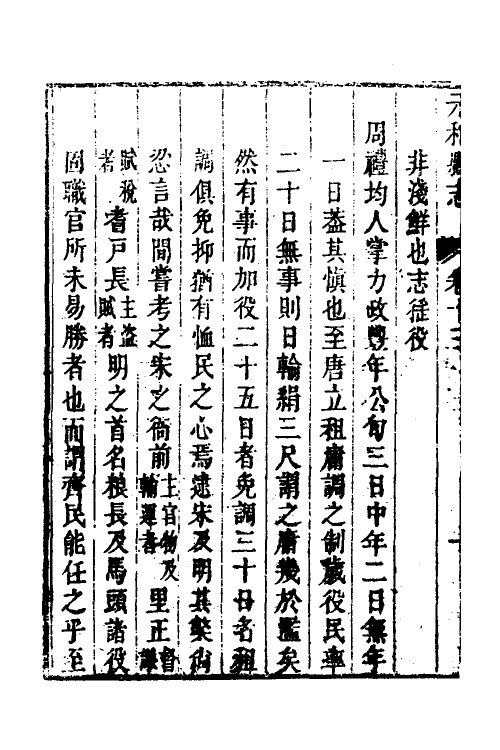 非淺鮮也志徭役
周禮均人掌力政豐年公旬三日中年二日無年
一日葢其慎也至唐立租庸調之制歲役民率
二十日無事則日輸絹三尺謂之庸幾於濫矣
然有事而加役二十五日者免調三十日者租
調俱免抑猶有恤民之心焉逮宋及明其獘尚
忍言哉間嘗考之宋之衙前主官物及輸運者里正督課
賦稅者耆戶長主盜賊者明之首名粮長及馬頭諸役
固職官所未易勝者也而謂齊民能任之乎至